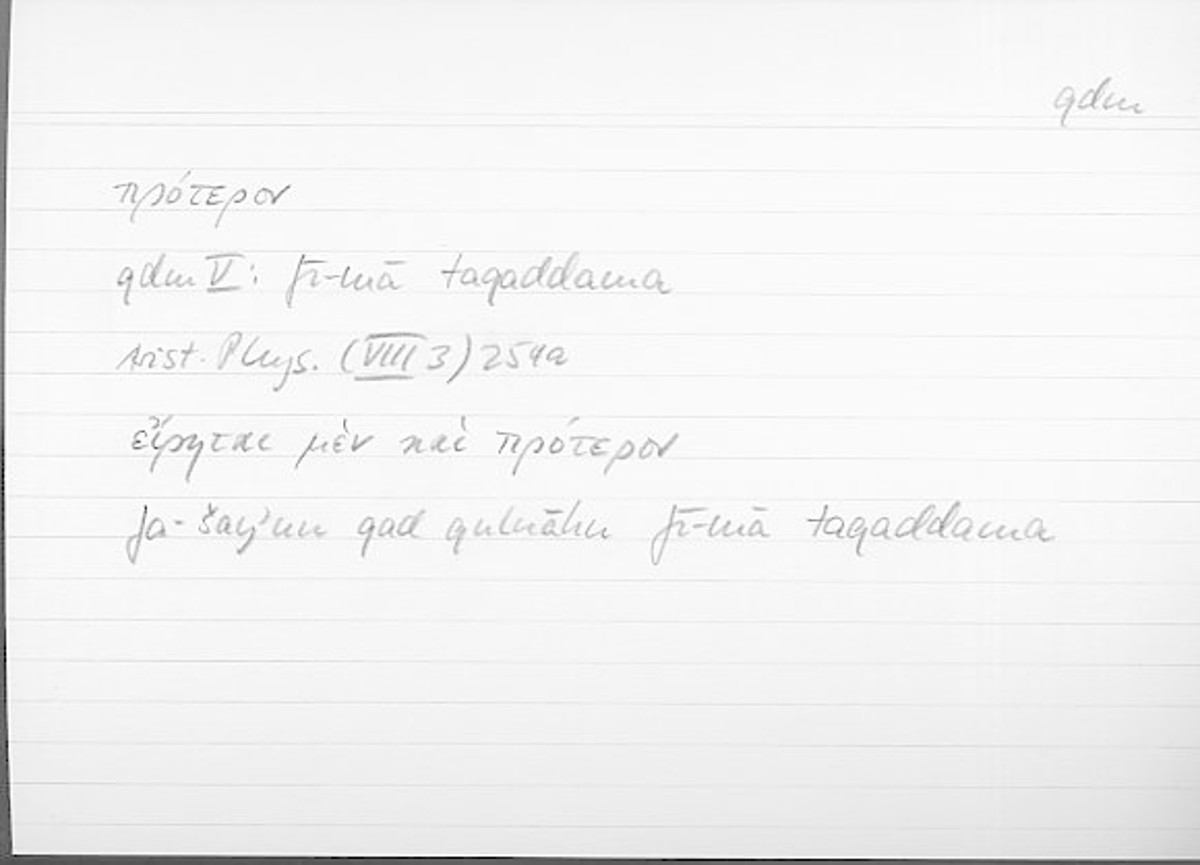 qdm
πρότερον
qdm V: fī-mā taqaddama
Arist. Phys. (VIII 3) 254a
εἴρηται μὲν καὶ πρότερον
fa-šayʾun qad qulnāhu fī-mā taqaddama